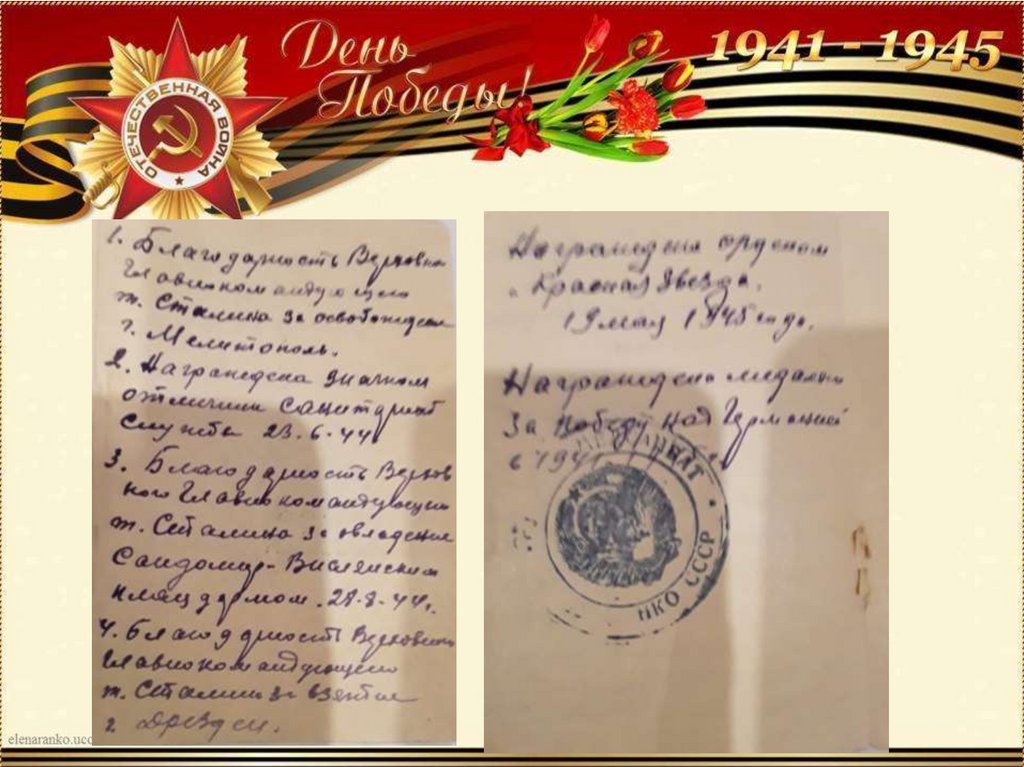 День
Победы!
1941 - 1945
ОТЕЧЕСТВЕННАЯ ВОЙНА
1. Благодарность Верховно
Главнокомандующего
т. Сталина за освобождение
г. Мелитополь.
2. Награждена значком
отличник санитарной
службы 23.6.44
3. Благодарность Верхов
ного Главнокомандующего
т. Сталина за овладение
Сандомир-Вислинским
плацдармом. 28.8.44г.
4. Благодарность Верховного
Главнокомандующего
т. Сталина за взятие
г. Дрезден.
Награждена орденом
Красная Звезда.
19 мая 1945 года.
Награждена медалью
За победу над Германией
в 194
НКО СССР
elenaranko.uco